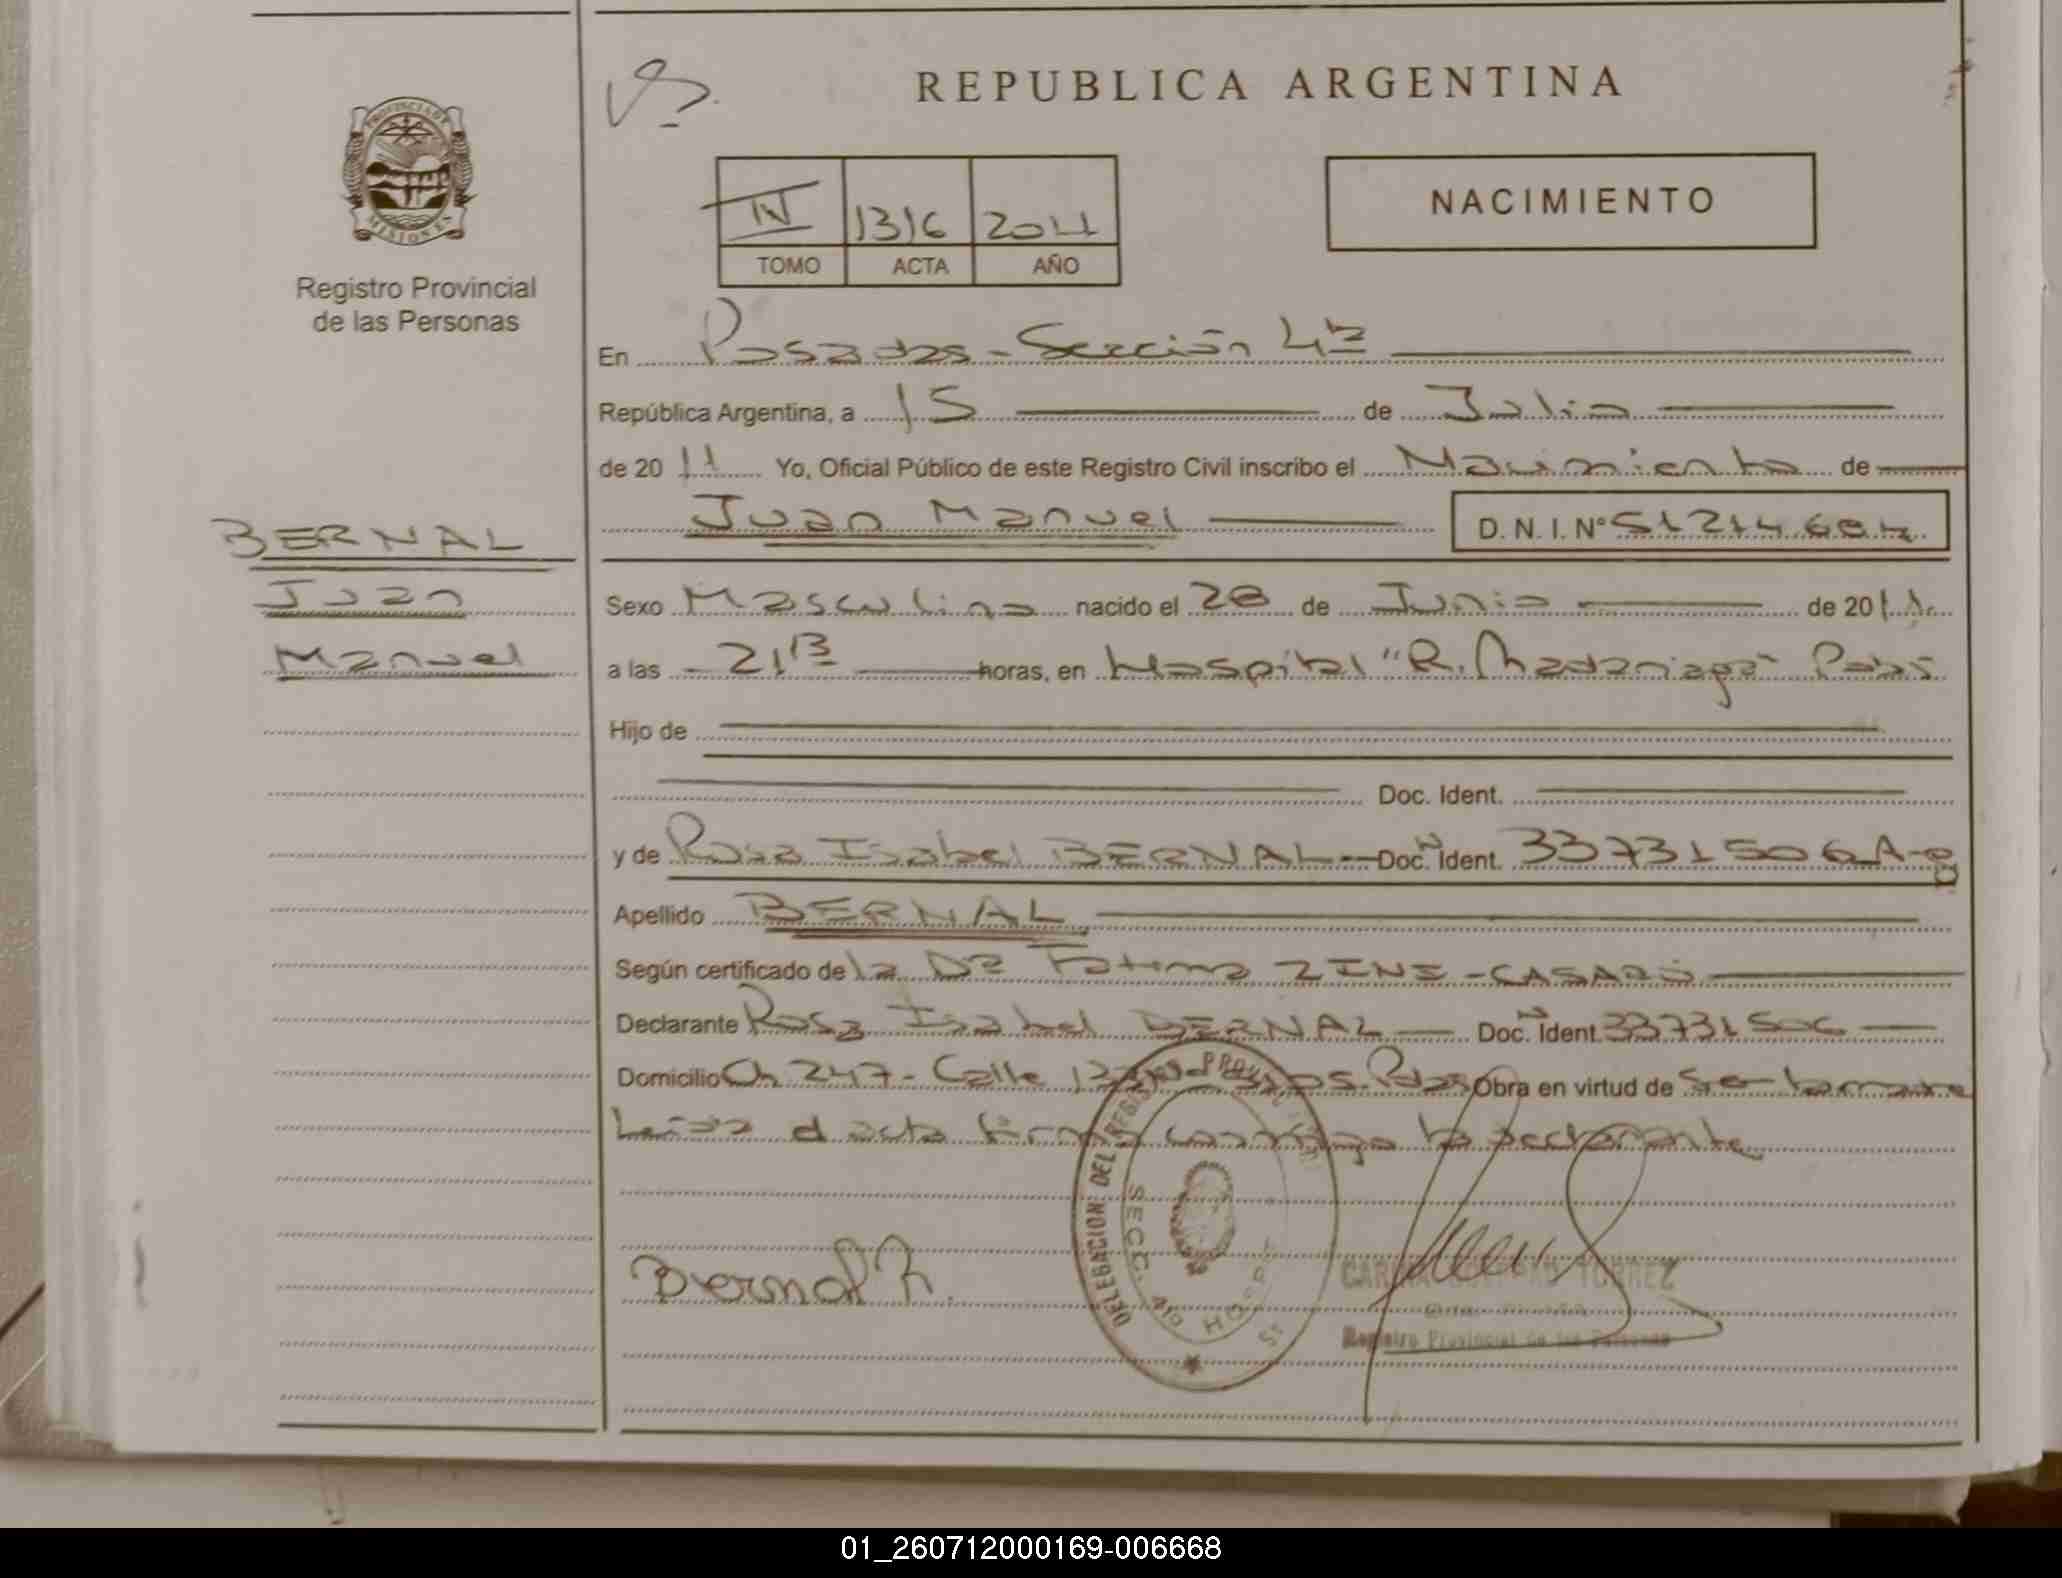 REPUBLICA ARGENTINA
PROVINCIA DE MISIONES
Registro Provincial
de las Personas
IV 1316 2011
TOMO ACTA AÑO
NACIMIENTO
En Posadas - Sección 4ª
República Argentina, a 15 de Julio
de 2011 Yo, Oficial Público de este Registro Civil inscribo el Nacimiento de
Juan Manuel D.N.I. Nº 51214.684
BERNAL
Juan
Manuel
Sexo Masculino nacido el 28 de Junio de 2011
a las 21 13 horas, en Hospital "R. Madariaga" Pdas
Hijo de
Doc. Ident.
y de Rosa Isabel BERNAL Doc. Ident. 33731506
Apellido BERNAL
Según certificado de la Dra Fatima ZINE - CASARO
Declarante Rosa Isabel BERNAL Doc. Ident. 33731506
Domicilio Ch 247 - Calle Pdas Obra en virtud de
Leída el acta firma conmigo la declarante
DELEGACION DEL REGISTRO
SECC. HOSPIT
Bernal R.
TORREZ
Registro Provincial de las Personas
01_260712000169-006668